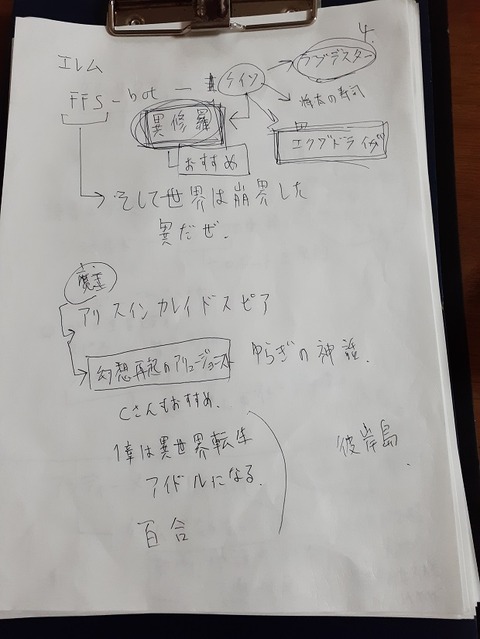 4
エレム
FFS-bot ー ケイソ
ラブデスター
異修羅
おすすめ
エクゾドライブ
そして世界は崩界した
異だぜ.
魔王
アリスインカレイドスピア
幻想再帰のアリュージョニスト ゆらぎの神話.
Cさんもおすすめ.
僕は異世界転生
アイドルになる.
百合
彼岸島.